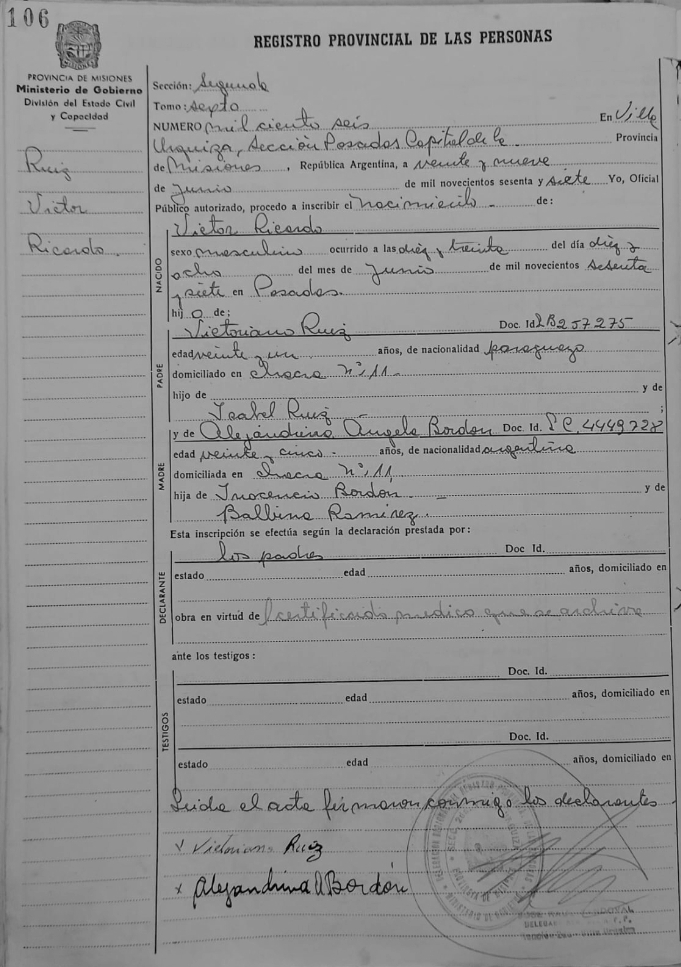 106
REGISTRO PROVINCIAL DE LAS PERSONAS
PROVINCIA DE MISIONES
Ministerio de Gobierno
División del Estado Civil
y Capacidad
Ruiz
Victor
Ricardo
Sección: Segunda
Tomo: sexto
NUMERO mil ciento seis En Villa
Urquiza, Sección Posadas Capital de la Provincia
de Misiones, República Argentina, a veinte y nueve
de Junio de mil novecientos sesenta y siete Yo, Oficial
Público autorizado, procedo a inscribir el nacimiento - de:
NACIDO
Victor Ricardo
sexo masculino ocurrido a las diez y treinta del día diez y
ocho del mes de Junio de mil novecientos sesenta
y siete en Posadas.
hijo de:
PADRE
Victoriano Ruiz Doc. Id.
edad veinte y un años, de nacionalidad paraguayo
domiciliado en chacra n° 11 -
hijo de y de
Isabel Ruiz - ;
MADRE
y de Alejandrina Angela Bordon Doc. Id. 4449728
edad veinte y cinco - años, de nacionalidad argentina
domiciliada en chacra n° 11,
hija de Inocencio Bordon - y de
Balbina Ramirez.
Esta inscripción se efectúa según la declaración prestada por:
DECLARANTE
los padres Doc Id.
estado edad años, domiciliado en
obra en virtud de certificado medico que se archiva
ante los testigos:
TESTIGOS
Doc. Id.
estado edad años, domiciliado en
Doc. Id.
estado edad años, domiciliado en
Leida el acta firmaron conmigo los declarantes
x Victoriano Ruiz
x Alejandrina A Bordón